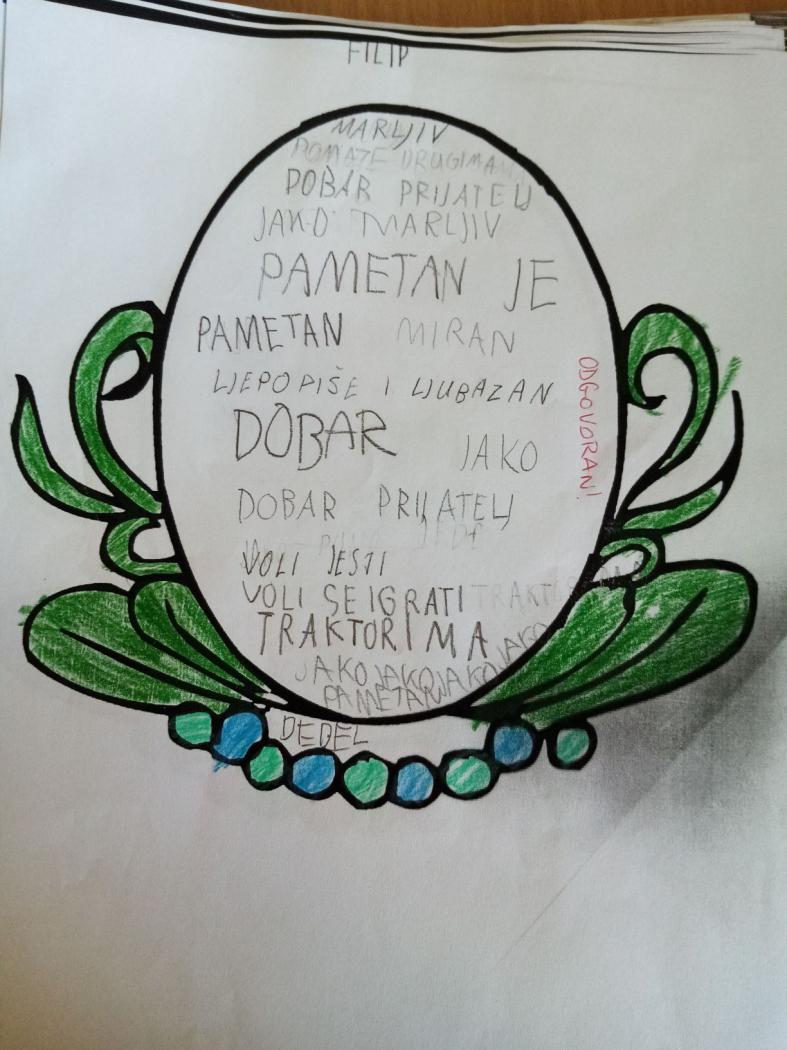 FILIP
MARLJIV
POMAŽE DRUGIMA
DOBAR PRIJATELJ
JAKO MARLJIV
PAMETAN JE
PAMETAN MIRAN
LJEPO PIŠE I LJUBAZAN
ODGOVORAN!
DOBAR JAKO
DOBAR PRIJATELJ
JEDE
VOLI JESTI
VOLI SE IGRATI
TRAKTORIMA
JAKO JAKO JAKO JAKO
PAMETAN
DEDEL